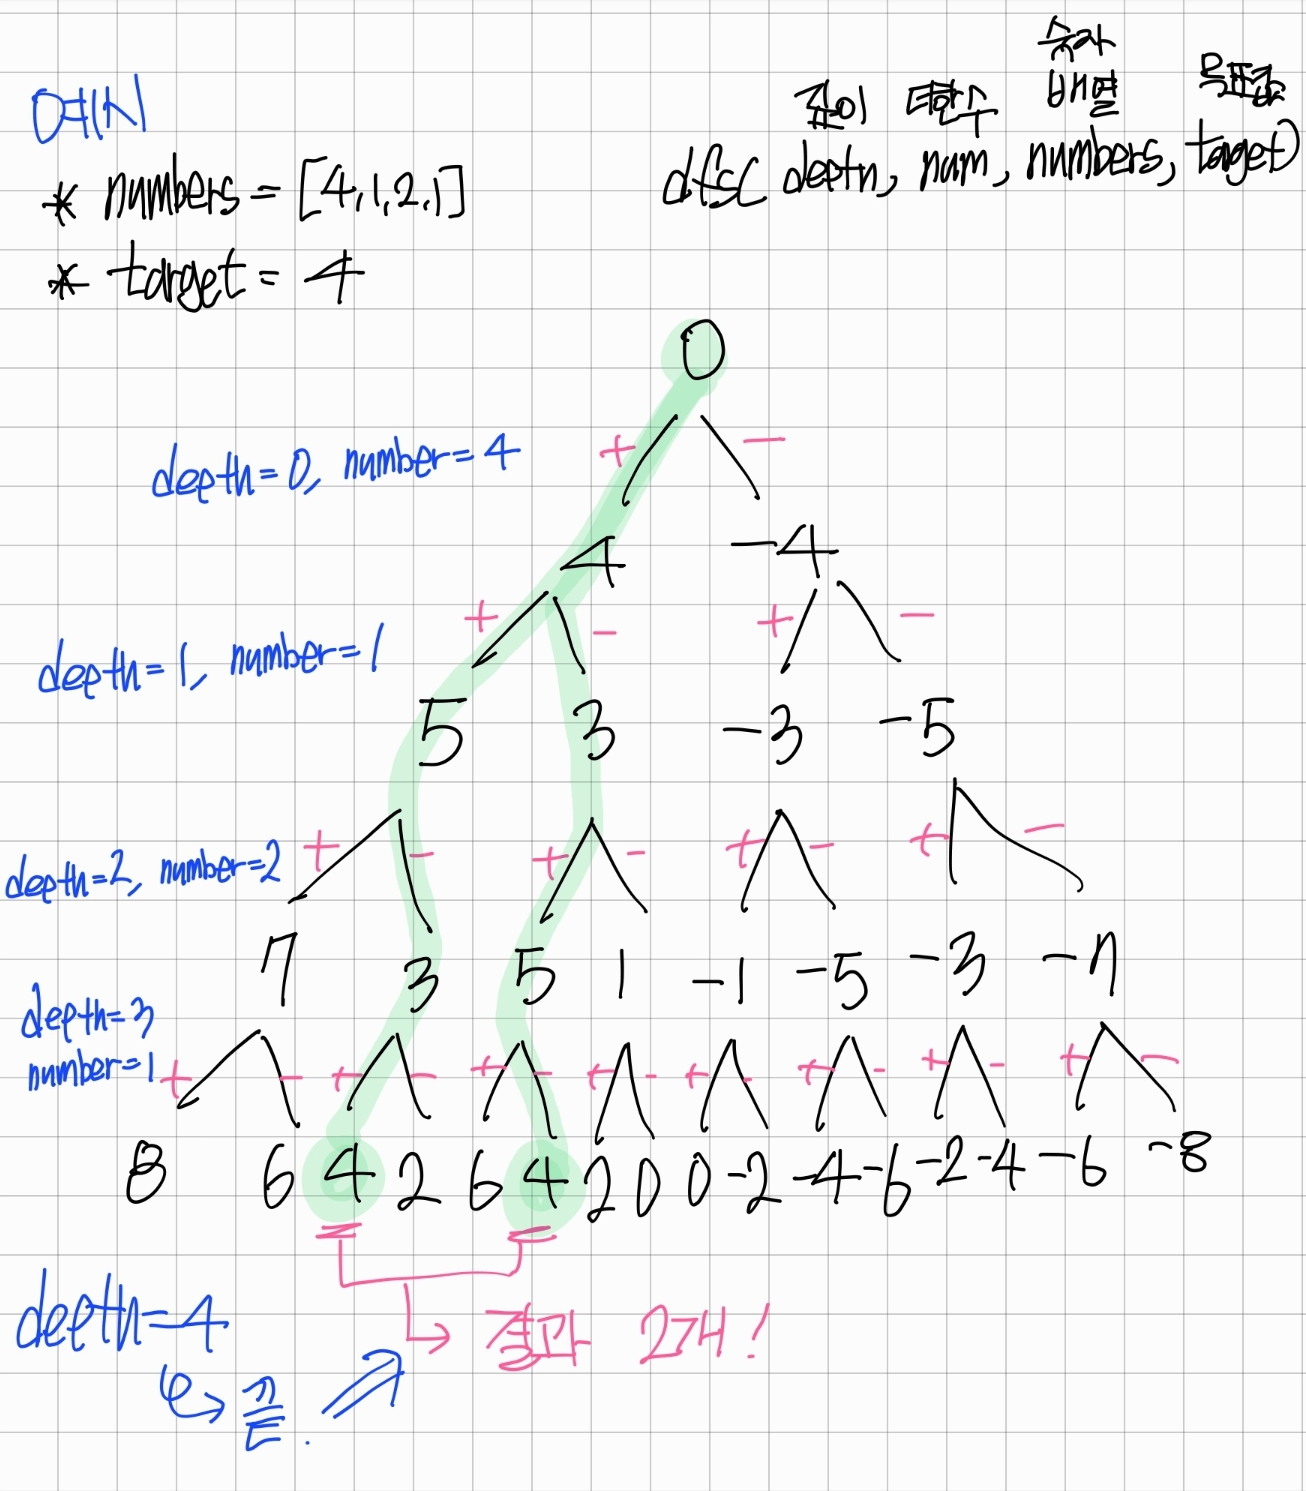 예시
* numbers = [4,1,2,1]
* target = 4
숫자
깊이 더한수 배열 목표값
dfs( depth, num, numbers, taget)
0
depth=0, number=4
+ −
4 −4
depth=1, number=1
+ − + −
5 3 −3 −5
depth=2, number=2
+ − + − + − + −
7 3 5 1 −1 −5 −3 −7
depth=3
number=1
+ − + − + − + − + − + − + − + −
8 6 4 2 6 4 2 0 0 -2 -4 -6 -2 -4 -6 -8
depth=4
결과 2개!
끝.